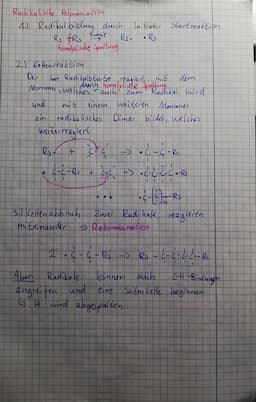 Radikalische Polymerisation
1.) Radikalbildung durch Initiator Startreaktion
R₃ + R₃ → R₃· ·R₃
homolytische Spaltung
2.) Kettenreaktion
Der Radikal reagiert mit dem
durch homolytische Spaltung
Monomer, welches auch zum Radikal wird
und mit einem weiteren Monomer
ein radikalisches Dimer bildet, welches
weiterreagiert
R₃· + C=C → ·C-C-R₃
·C-C-R₃ + C=C → ·C-C-C-C-R₃
...
3.) Kettenabbruch Zwei Radikale reagieren
miteinander → Rekombination
2 ·C-C-R₃ → R₃-C-C-C-C-R₃
Aber: Radikale können auch C-H-Bindungen
angreifen und eine Seitenkette beginnen
↳ H wird abgespalten